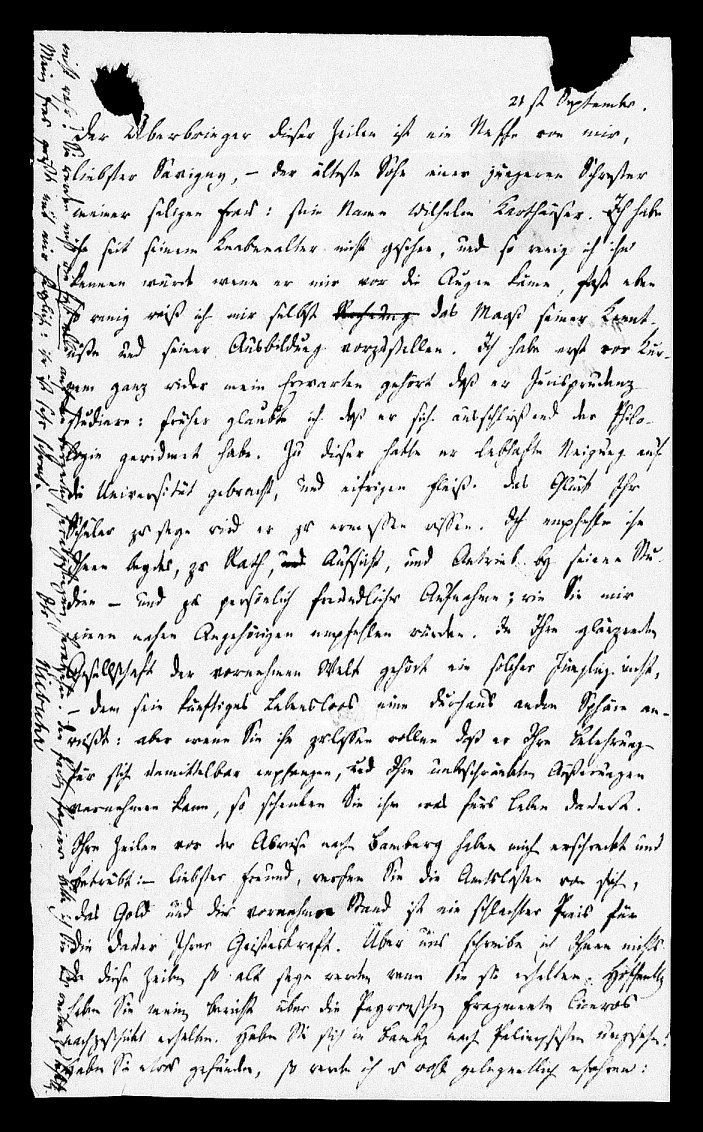 21st September.
Der Überbringer dieser Zeilen ist ein Neffe von mir,
liebster Savigny, – der älteste Sohn einer jüngeren Schwester
meiner seligen Frau: sein Name Wilhelm Karthäuser. Ich habe
ihn seit seinem Knabenalter nicht gesehen, und so wenig ich ihn
kennen würde wenn er mir vor die Augen käme, fast eben
so wenig weiß ich mir selbst das Maaß seiner Kennt-
nisse und seiner Ausbildung vorzustellen. Ich habe erst vor Kur-
zem ganz wider mein Erwarten gehört daß er Jurisprudenz
studiere: früher glaubte ich daß er sich ausschließend der Philo-
logie gewidmet habe. Zu dieser hatte er lebhafte Neigung auf
die Universität gebracht, und eifrigen Fleiß. Das Glück Ihr
Schüler zu seyn wird er zu ermessen wissen. Ich empfehle ihn
Ihnen bestens, zu Rath, und Aufsicht, und Antrieb bey seinen Stu-
dien – und zu persönlich freundlicher Aufnahme; wie Sie mir
einen nahen Angehörigen empfehlen würden. In Ihre glänzende
Gesellschaft der vornehmen Welt gehört ein solcher Jüngling nicht,
– dem sein künftiges Lebensloos eine durchaus andre Sphäre an-
weißt: aber wenn Sie ihn zulassen wollen daß er Ihre Belehrung
für sich unmittelbar empfangen, und Ihre unbeschränkten Äußerungen
vernehmen kann, so schenken Sie ihm was fürs Leben dadurch.
Ihre Zeilen vor der Abreise nach Bamberg haben mich erschreckt und
betrübt: – liebster Freund, werfen Sie die Amtslasten von sich,
das Gold und der vornehme Stand ist ein schlechter Preis für
die Dauer Ihrer Geisteskraft. Über uns schreibe ich Ihnen nichts
da diese Zeilen so alt seyn werden wenn Sie sie erhalten. Hoffentlich
haben Sie meinen Bericht über die Peyronschen Fragmente Ciceros
nachgeschickt erhalten. Haben Sie sich in Bamberg nach Palimpsesten umgesehn?
Haben Sie etwas gefunden, so werde ich es wohl gelegentlich erfahren:
Mein Frau grüßt mit mir herzlich: sie ist sehr schwach.
Ihr
Niebuhr